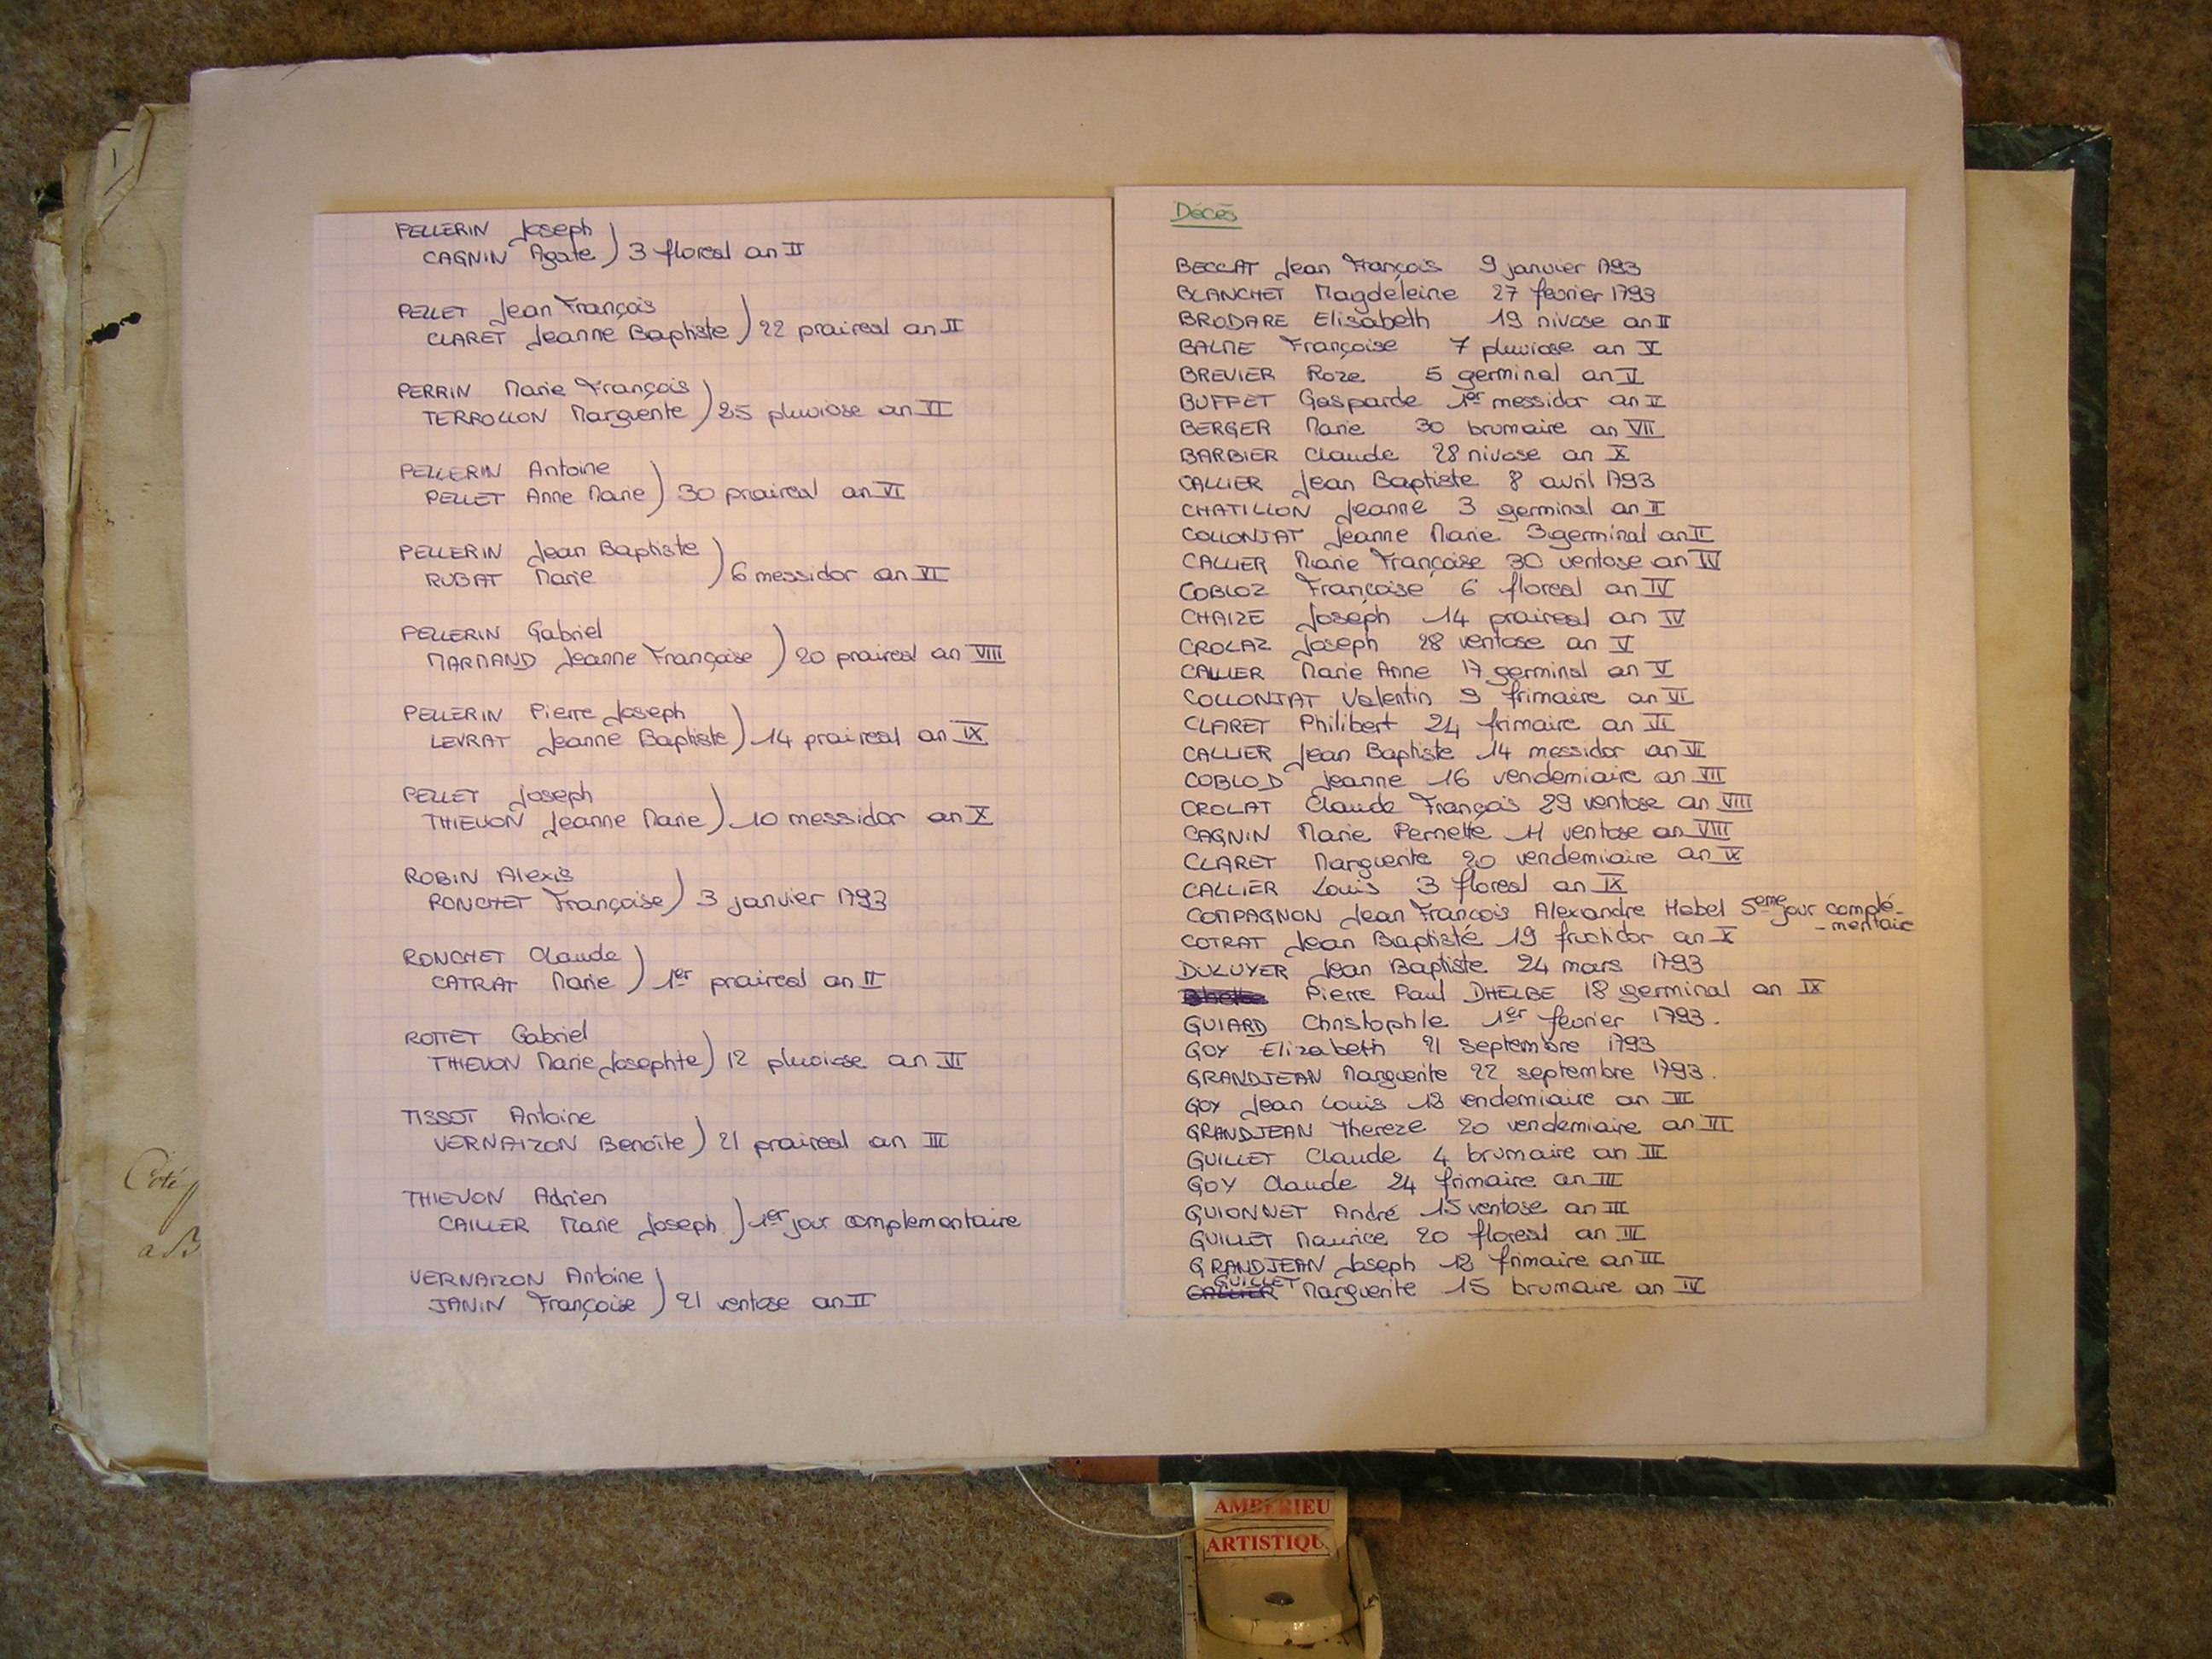 PELLERIN Joseph
CAGNIN Agate ) 3 floreal an II
PELLET Jean François
CLARET Jeanne Baptiste ) 22 praireal an II
PERRIN Marie François
TERROLLON Marguerite ) 25 pluviose an VI
PELLERIN Antoine
PELLET Anne Marie ) 30 praireal an VI
PELLERIN Jean Baptiste
RUBAT Marie ) 6 messidor an VI
PELLERIN Gabriel
MARMAND Jeanne Françoise ) 20 praireal an VIII
PELLERIN Pierre Joseph
LEVRAT Jeanne Baptiste ) 14 praireal an IX
PELLET Joseph
THIEVON Jeanne Marie ) 10 messidor an X
ROBIN Alexis
RONCHET Françoise ) 3 janvier 1793
RONCHET Claude
CATRAT Marie ) 1er praireal an II
ROTTET Gabriel
THIEVON Marie Josephte ) 12 pluviose an VI
TISSOT Antoine
VERNAIZON Benoîte ) 21 praireal an III
THIEVON Adrien
CAILLER Marie Joseph ) 1er jour complementaire
VERNAIZON Antoine
JANIN Françoise ) 21 ventose an II
Décès
BECCAT Jean François 9 janvier 1793
BLANCHET Magdeleine 27 fevrier 1793
BRODARE Elisabeth 19 nivose an II
BALME Françoise 7 pluviose an V
BREVIER Roze 5 germinal an V
BUFFET Gasparde 1er messidor an V
BERGER Marie 30 brumaire an VII
BARBIER Claude 28 nivose an X
CALLIER Jean Baptiste 8 avril 1793
CHATILLON Jeanne 3 germinal an II
COLLONJAT Jeanne Marie 3 germinal an II
CALLIER Marie Françoise 30 ventose an IV
COBLOZ Françoise 6 floreal an IV
CHAIZE Joseph 14 praireal an IV
CROLAZ Joseph 28 ventose an V
CALLIER Marie Anne 17 germinal an V
COLLONJAT Valentin 9 frimaire an VI
CLARET Philibert 24 frimaire an VI
CALLIER Jean Baptiste 14 messidor an VI
COBLOD Jeanne 16 vendemiaire an VII
CROLAT Claude François 29 ventose an VIII
CAGNIN Marie Pernette 11 ventose an VIII
CLARET Marguerite 20 vendemiaire an IX
CALLIER Louis 3 floreal an IX
COMPAGNON Jean François Alexandre Mabel 5eme jour complé-
-mentaire
COTRAT Jean Baptiste 19 fructidor an X
DULUYER Jean Baptiste 24 mars 1793
Pierre Paul DHELBE 18 germinal an IX
GUIARD Christophle 1er fevrier 1793.
GOY Elizabeth 21 septembre 1793
GRANDJEAN Marguerite 22 septembre 1793.
GOY Jean Louis 13 vendemiaire an III
GRANDJEAN Thereze 20 vendemiaire an III
GUILLET Claude 4 brumaire an III
GOY Claude 24 frimaire an III
GUIONNET André 15 ventose an III
GUILLET Maurice 20 floreal an III
GRANDJEAN Joseph 13 frimaire an III
GUILLET Marguerite 15 brumaire an IV
Coté
AMBERIEU
ARTISTIQU